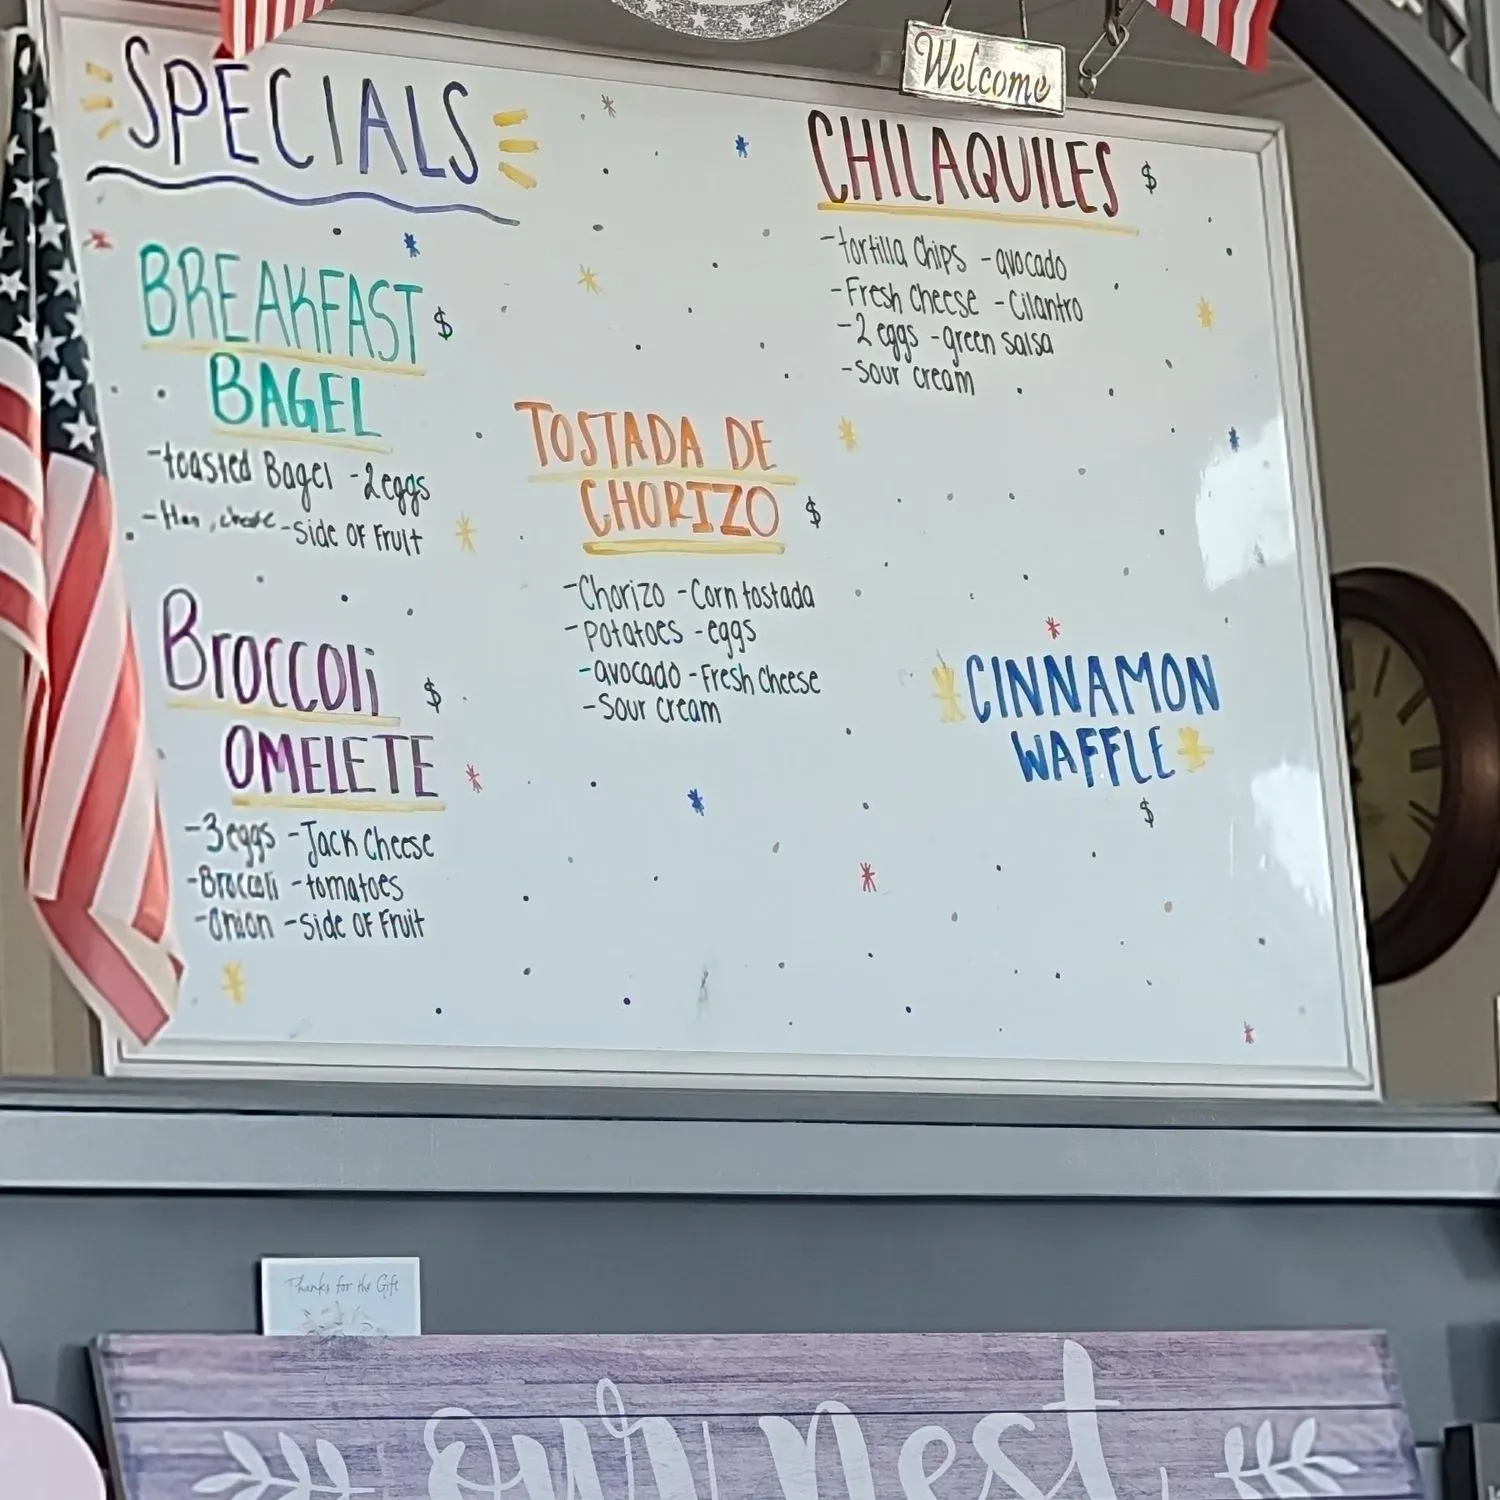 Welcome
SPECIALS
BREAKFAST $
BAGEL
-toasted Bagel -2 eggs
-Ham, cheese -Side OF Fruit
Broccoli $
OMELETE
-3 eggs -Jack Cheese
-Broccoli -tomatoes
-Onion -Side OF Fruit
TOSTADA DE
CHORIZO $
-Chorizo -Corn tostada
-Potatoes -eggs
-avocado -Fresh Cheese
-Sour cream
CHILAQUILES $
-tortilla Chips -avocado
-Fresh Cheese -Cilantro
-2 eggs -green salsa
-Sour cream
CINNAMON
WAFFLE
$
Thanks for the Gift
our nest